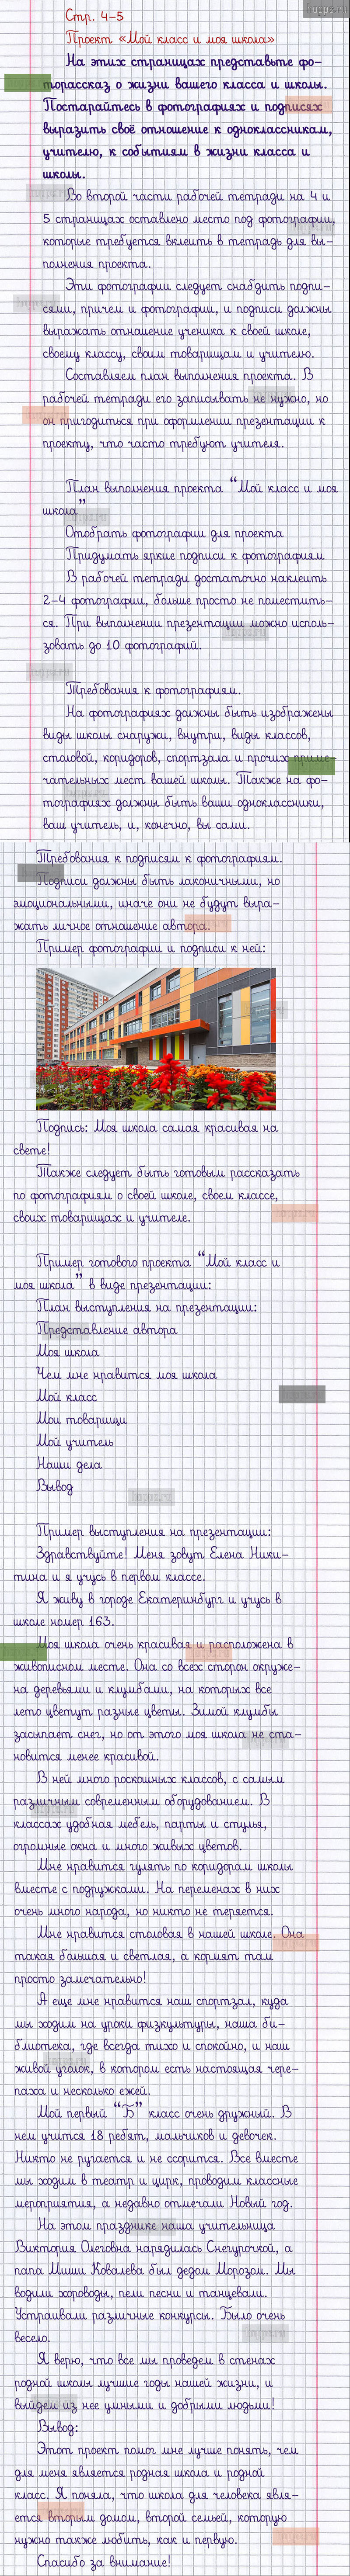 Стр. 4-5
Проект «Мой класс и моя школа»
На этих страницах представьте фо-
торассказ о жизни вашего класса и школы.
Постарайтесь в фотографиях и подписях
выразить своё отношение к одноклассникам,
учителю, к событиям в жизни класса и
школы.
Во второй части рабочей тетради на 4 и
5 страницах оставлено место под фотографии,
которые требуется вклеить в тетрадь для вы-
полнения проекта.
Эти фотографии следует снабдить подпи-
сями, причем и фотографии, и подписи должны
выражать отношение ученика к своей школе,
своему классу, своим товарищам и учителю.
Составляем план выполнения проекта. В
рабочей тетради его записывать не нужно, но
он пригодиться при оформлении презентации к
проекту, что часто требуют учителя.
План выполнения проекта “Мой класс и моя
школа”
Отобрать фотографии для проекта
Придумать яркие подписи к фотографиям
В рабочей тетради достаточно наклеить
2-4 фотографии, больше просто не поместить-
ся. При выполнении презентации можно исполь-
зовать до 10 фотографий.
Требования к фотографиям.
На фотографиях должны быть изображены
виды школы снаружи, внутри, виды классов,
столовой, коридоров, спортзала и прочих приме-
чательных мест вашей школы. Также на фо-
тографиях должны быть ваши одноклассники,
ваш учитель, и, конечно, вы сами.
Требования к подписям к фотографиям.
Подписи должны быть лаконичными, но
эмоциональными, иначе они не будут выра-
жать личное отношение автора.
Пример фотографии и подписи к ней:
Подпись: Моя школа самая красивая на
свете!
Также следует быть готовым рассказать
по фотографиям о своей школе, своем классе,
своих товарищах и учителе.
Пример готового проекта “Мой класс и
моя школа” в виде презентации:
План выступления на презентации:
Представление автора
Моя школа
Чем мне нравится моя школа
Мой класс
Мои товарищи
Мой учитель
Наши дела
Вывод
Пример выступления на презентации:
Здравствуйте! Меня зовут Елена Ники-
тина и я учусь в первом классе.
Я живу в городе Екатеринбург и учусь в
школе номер 163.
Моя школа очень красивая и расположена в
живописном месте. Она со всех сторон окруже-
на деревьями и клумбами, на которых все
лето цветут разные цветы. Зимой клумбы
засыпает снег, но от этого моя школа не ста-
новится менее красивой.
В ней много роскошных классов, с самым
различным современным оборудованием. В
классах удобная мебель, парты и стулья,
огромные окна и много живых цветов.
Мне нравится гулять по коридорам школы
вместе с подружками. На переменах в них
очень много народа, но никто не теряется.
Мне нравится столовая в нашей школе. Она
такая большая и светлая, а кормят там
просто замечательно!
А еще мне нравится наш спортзал, куда
мы ходим на уроки физкультуры, наша би-
блиотека, где всегда тихо и спокойно, и наш
живой уголок, в котором есть настоящая чере-
паха и несколько ежей.
Мой первый “Б” класс очень дружный. В
нем учится 18 ребят, мальчиков и девочек.
Никто не ругается и не ссорится. Все вместе
мы ходим в театр и цирк, проводим классные
мероприятия, а недавно отмечали Новый год.
На этом празднике наша учительница
Виктория Олеговна нарядилась Снегурочкой, а
папа Миши Ковалева был дедом Морозом. Мы
водили хороводы, пели песни и танцевали.
Устраивали различные конкурсы. Было очень
весело.
Я верю, что все мы проведем в стенах
родной школы лучшие годы нашей жизни, и
выйдем из нее умными и добрыми людьми!
Вывод:
Этот проект помог мне лучше понять, чем
для меня является родная школа и родной
класс. Я поняла, что школа для человека явля-
ется вторым домом, второй семьей, которую
нужно также любить, как и первую.
Спасибо за внимание!